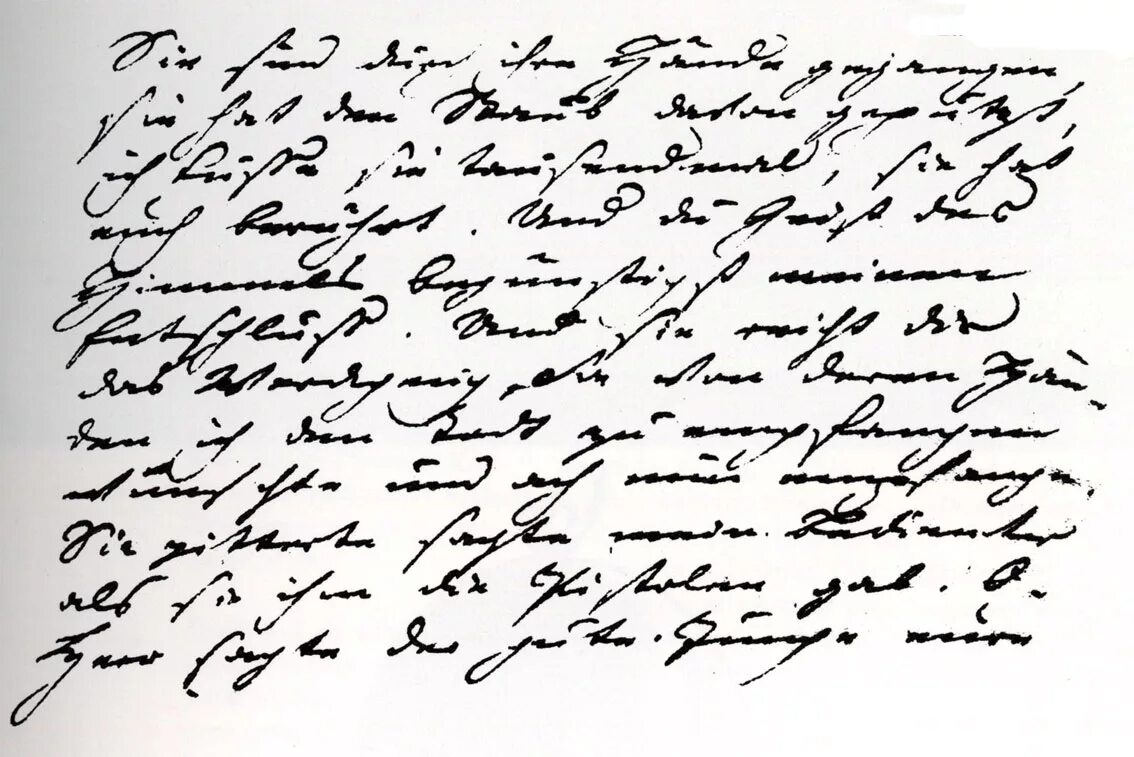 Sie sind durch ihre Hände gegangen,
sie hat den Staub davon geputzt,
ich küsse sie tausendmal, sie hat
euch berührt. Und du Geist des
Himmels begünstigst meinen
Entschluss. Und sie reicht dir
das Werckzeug, Sie von deren Hän-
den ich den Todt zu empfangen
wünschte und ach nun empfange.
Sie zitterte sagte mein Bedienter
als sie ihm die Pistolen gab. O
Herr sagte der gute Junge eure